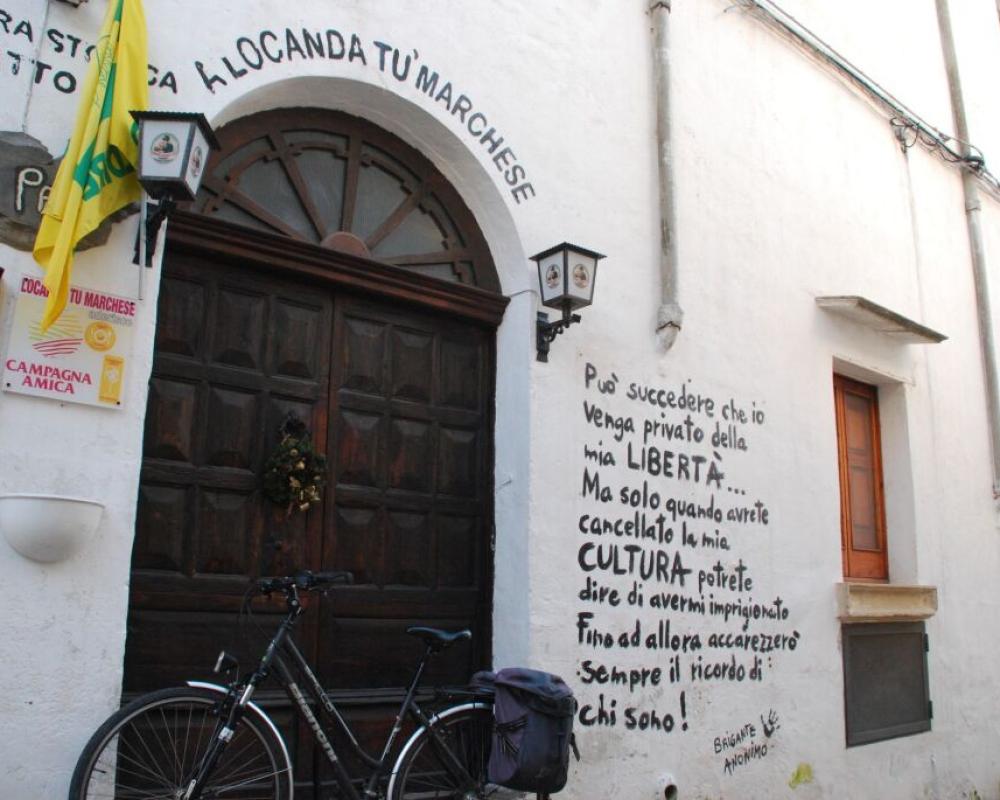 A LOCANDA TU' MARCHESE
LOCANDA TU MARCHESE
CAMPAGNA
AMICA
Può succedere che io
venga privato della
mia LIBERTÀ...
Ma solo quando avrete
cancellato la mia
CULTURA potrete
dire di avermi imprigionato
Fino ad allora accarezzerò
sempre il ricordo di
chi sono!
BRIGANTE
ANONIMO